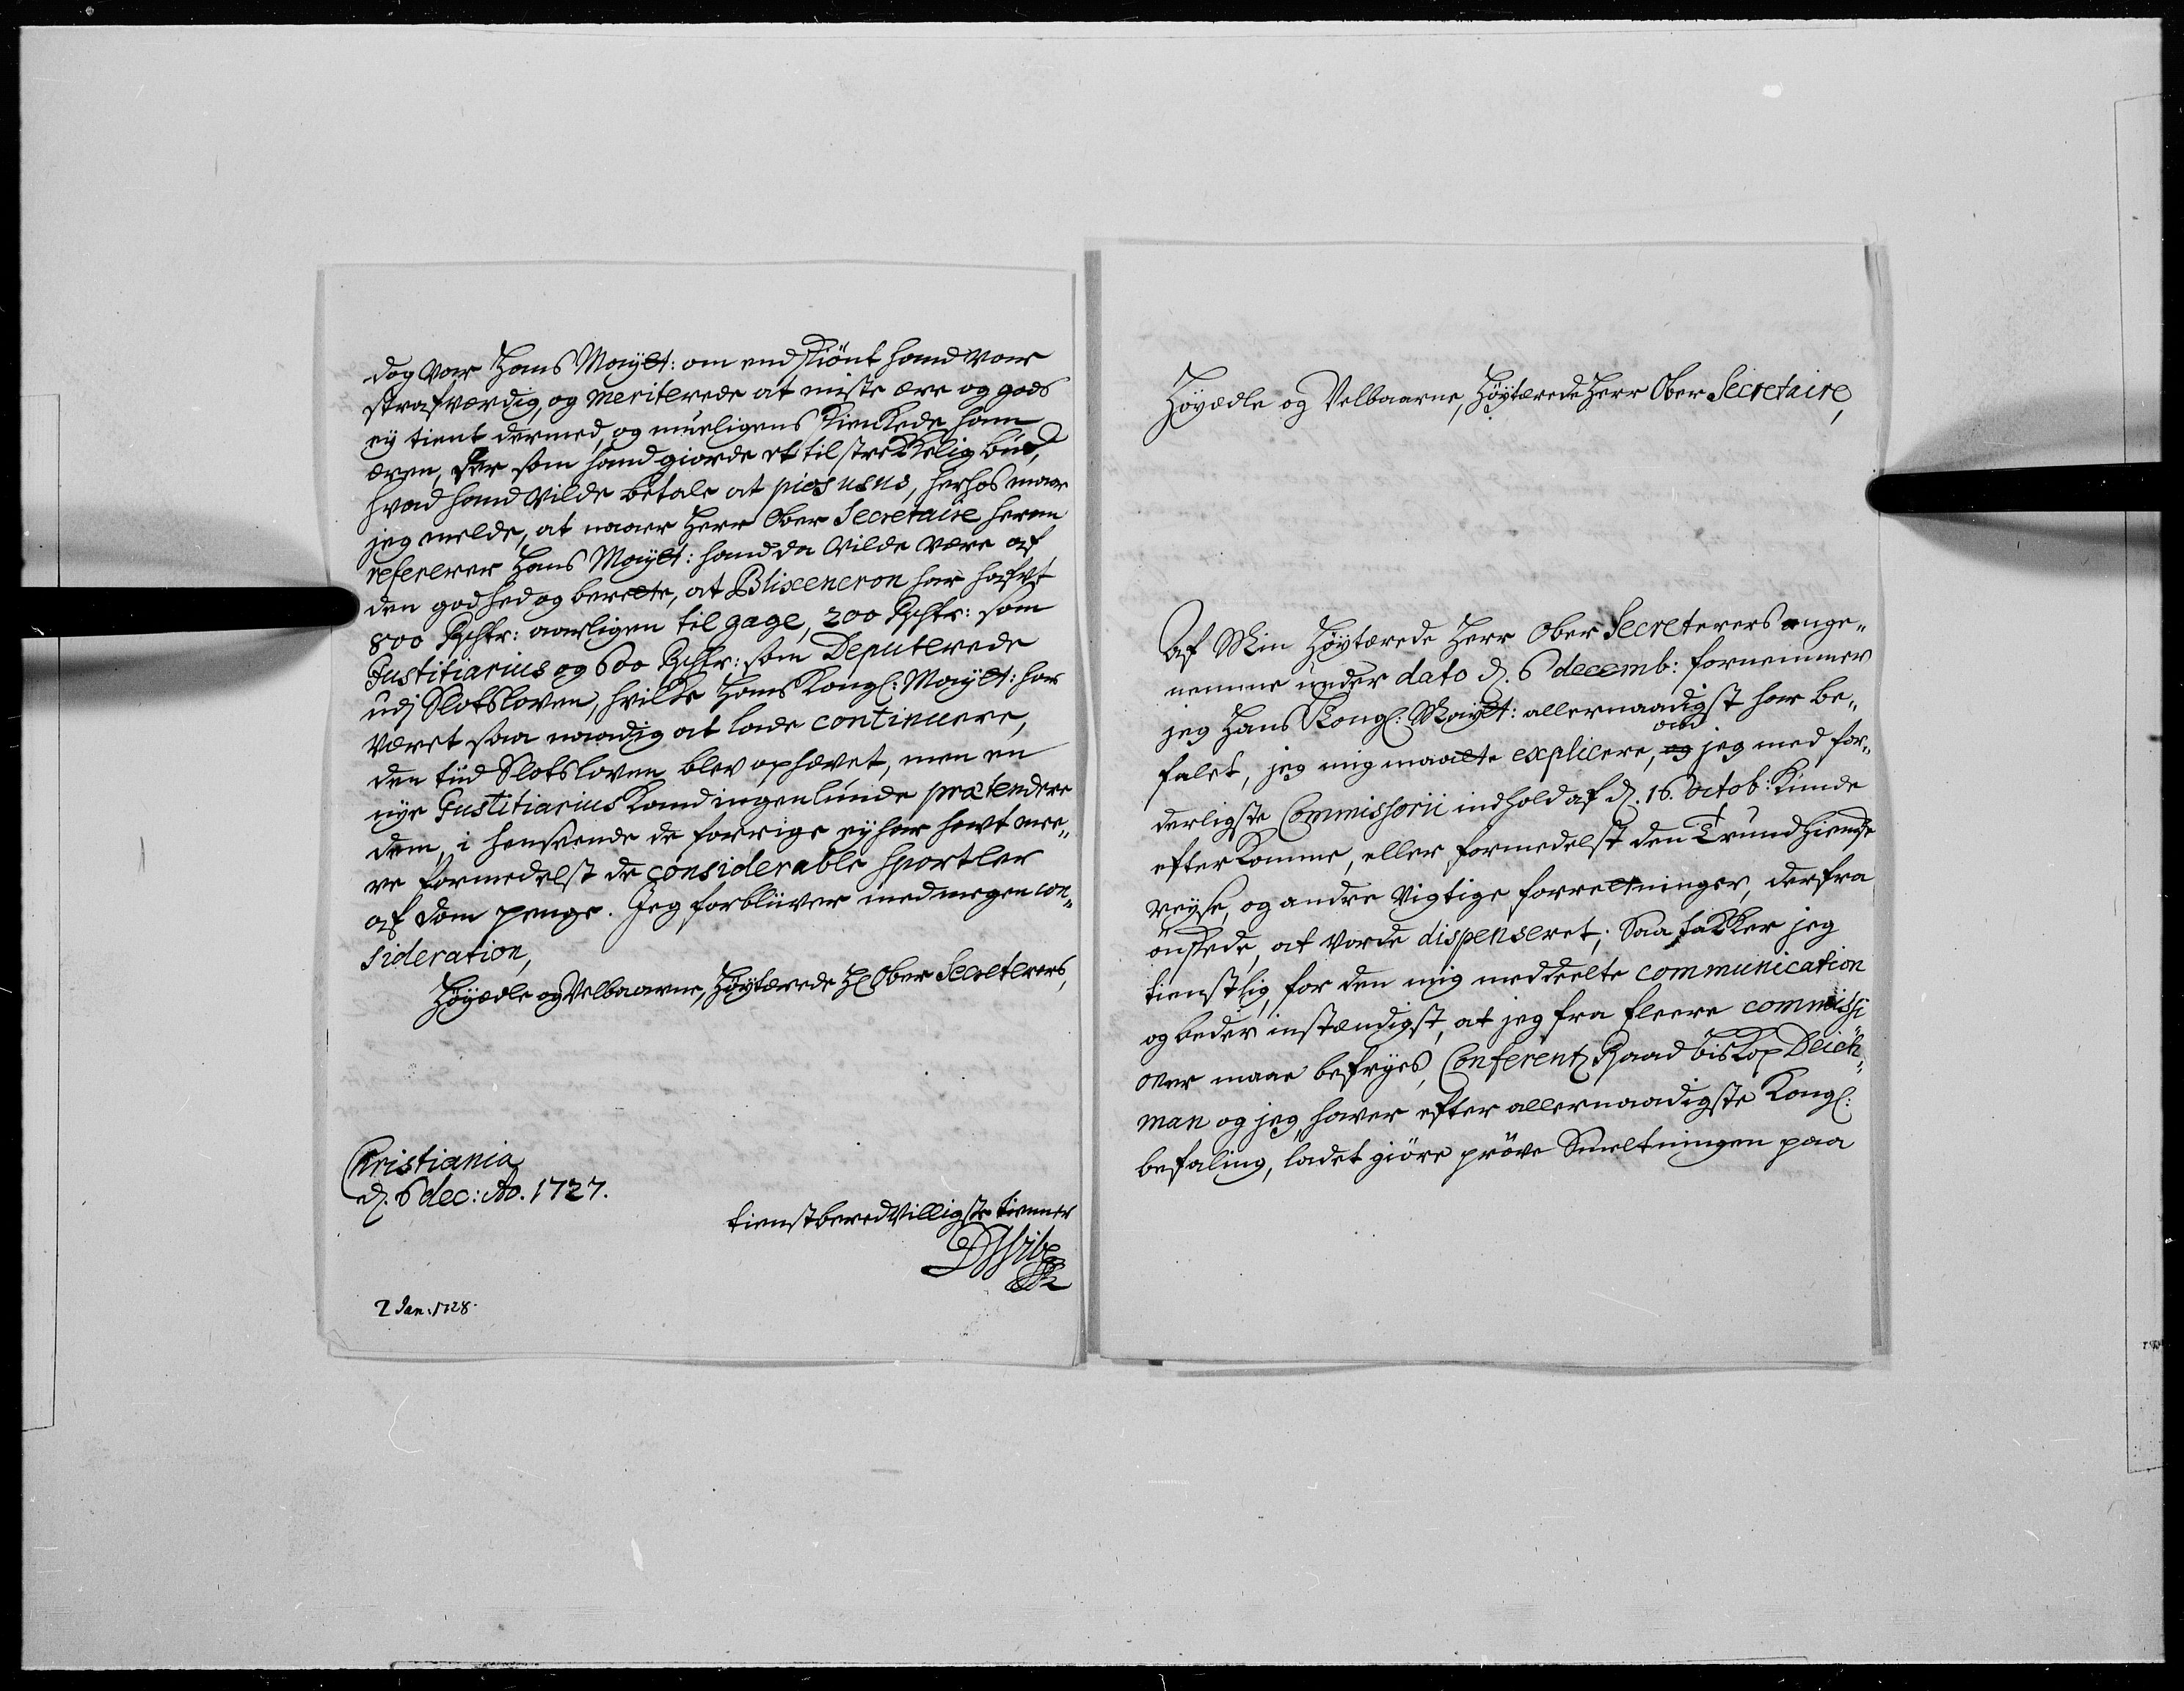 dog var Hans Mayst: om endskiönt hand var
strafværdig, og meriterede at miste ære og gods
ey tient dermed, og mueligens skienkede ham
æren, der som hand giorde et tilstrekkelig bud,
hvad hand vilde betale at pios usus, herhos maa
jeg melde, at naar Herr Ober Secretaire herom
refererer Hans Mayst: hand da vilde være af
den godhed og berette, at Blixencron har hafvt
800 Rdr: aarligen til gage, 200 Rdr: som
Justitiarius og 600 Rdr: som Deputerede
udj Slotsloven, hvilke Hans Kongl: Mayst: har
været saa naadig at lade continuere,
den tiid Slotsloven blev ophævet, men en
nye Justitiarius kand ingenlunde prætendere
dem, i henseende de forrige ey har havt mee„
re formedelst de considerable sportler
af dom penge. Jeg forbliver med megen con„
sideration,
Høyædle og Velbaarne, Høytærede Hr Ober Secreterers,
Christiania
d. 6 dec: Ao. 1727.
tienstberedvilligste tienner
DVibe
2 Jan: 1728.
Høyædle og Velbaarne, Høytærede Herr Ober Secretaire,
Af Min Høytærede Herr Ober Secreterers ange„
nemme under dato d. 6 decemb: fornemmer
jeg Hans Kongl: Mayst: allernaadigst har be„
falet, jeg mig maatte explicere, og jeg med for„
om
derligste Commissorii indhold af d. 16. Octob: kunde
efterkomme, eller formedelst den Trundhiemske
reyse, og andre vigtige forretninger, derfra
ønskede, at vorde dispenseret; Saa takker jeg
tienstlig, for den mig meddeelte communication
og beder instændigst, at jeg fra fleere commissi
oner maae befries, Conferentz Raad biskop Deich„
man og jeg, haver efter allernaadigste Kongl:
befaling, ladet giöre pröve Smeltningen paa